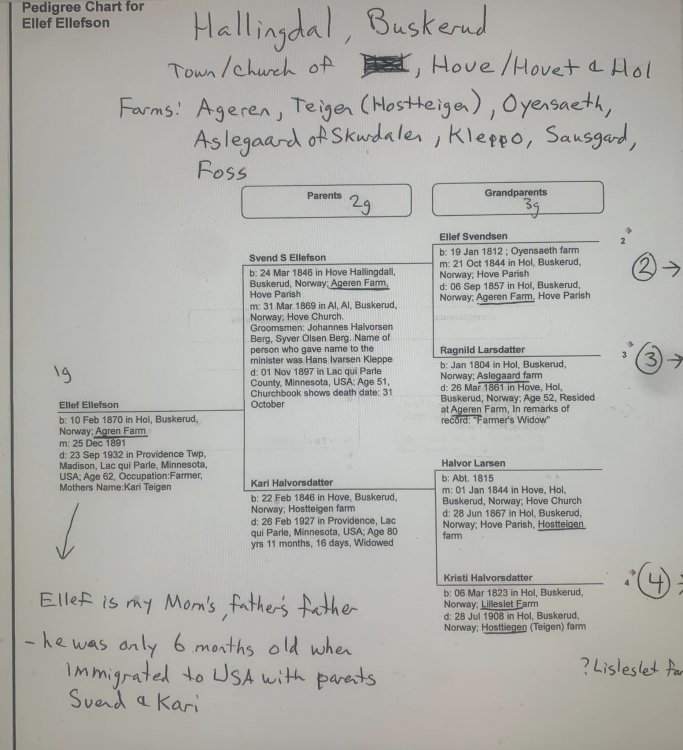 Pedigree Chart for
Ellef Ellefson
Hallingdal, Buskerud
Town/church of , Hove/Hovet & Hol
Farms: Ageren, Teigen (Hostteigen), Oyensaeth,
Aslegaard of Skurdalen, Kleppo, Sausgard,
Foss
Parents 2g
Grandparents
3g
Ellef Svendsen
b: 19 Jan 1812 ; Oyensaeth farm
m: 21 Oct 1844 in Hol, Buskerud,
Norway; Hove Parish
d: 06 Sep 1857 in Hol, Buskerud,
Norway; Ageren Farm, Hove Parish
2
② →
Svend S Ellefson
b: 24 Mar 1846 in Hove Hallingdall,
Buskerud, Norway; Ageren Farm,
Hove Parish
m: 31 Mar 1869 in Al, Al, Buskerud,
Norway; Hove Church.
Groomsmen: Johannes Halvorsen
Berg, Syver Olsen Berg. Name of
person who gave name to the
minister was Hans Ivarsen Kleppe
d: 01 Nov 1897 in Lac qui Parle
County, Minnesota, USA; Age 51,
Churchbook shows death date: 31
October
Ragnild Larsdatter
b: Jan 1804 in Hol, Buskerud,
Norway; Aslegaard farm
d: 26 Mar 1861 in Hove, Hol,
Buskerud, Norway; Age 52, Resided
at Ageren Farm, In remarks of
record: "Farmer's Widow"
3
③ →
1g
Ellef Ellefson
b: 10 Feb 1870 in Hol, Buskerud,
Norway; Agren Farm
m: 25 Dec 1891
d: 23 Sep 1932 in Providence Twp,
Madison, Lac qui Parle, Minnesota,
USA; Age 62, Occupation:Farmer,
Mothers Name:Kari Teigen
Kari Halvorsdatter
b: 22 Feb 1846 in Hove, Buskerud,
Norway; Hostteigen farm
d: 26 Feb 1927 in Providence, Lac
qui Parle, Minnesota, USA; Age 80
yrs 11 months, 16 days, Widowed
Halvor Larsen
b: Abt. 1815
m: 01 Jan 1844 in Hove, Hol,
Buskerud, Norway; Hove Church
d: 28 Jun 1867 in Hol, Buskerud,
Norway; Hove Parish, Hostteigen
farm
Kristi Halvorsdatter
b: 06 Mar 1823 in Hol, Buskerud,
Norway; Lilleslet Farm
d: 28 Jul 1908 in Hol, Buskerud,
Norway; Hosttiegen (Teigen) farm
4
④
? Lisleslet fa
Ellef is my Mom's, father's father
- he was only 6 months old when
immigrated to USA with parents
Svend & Kari